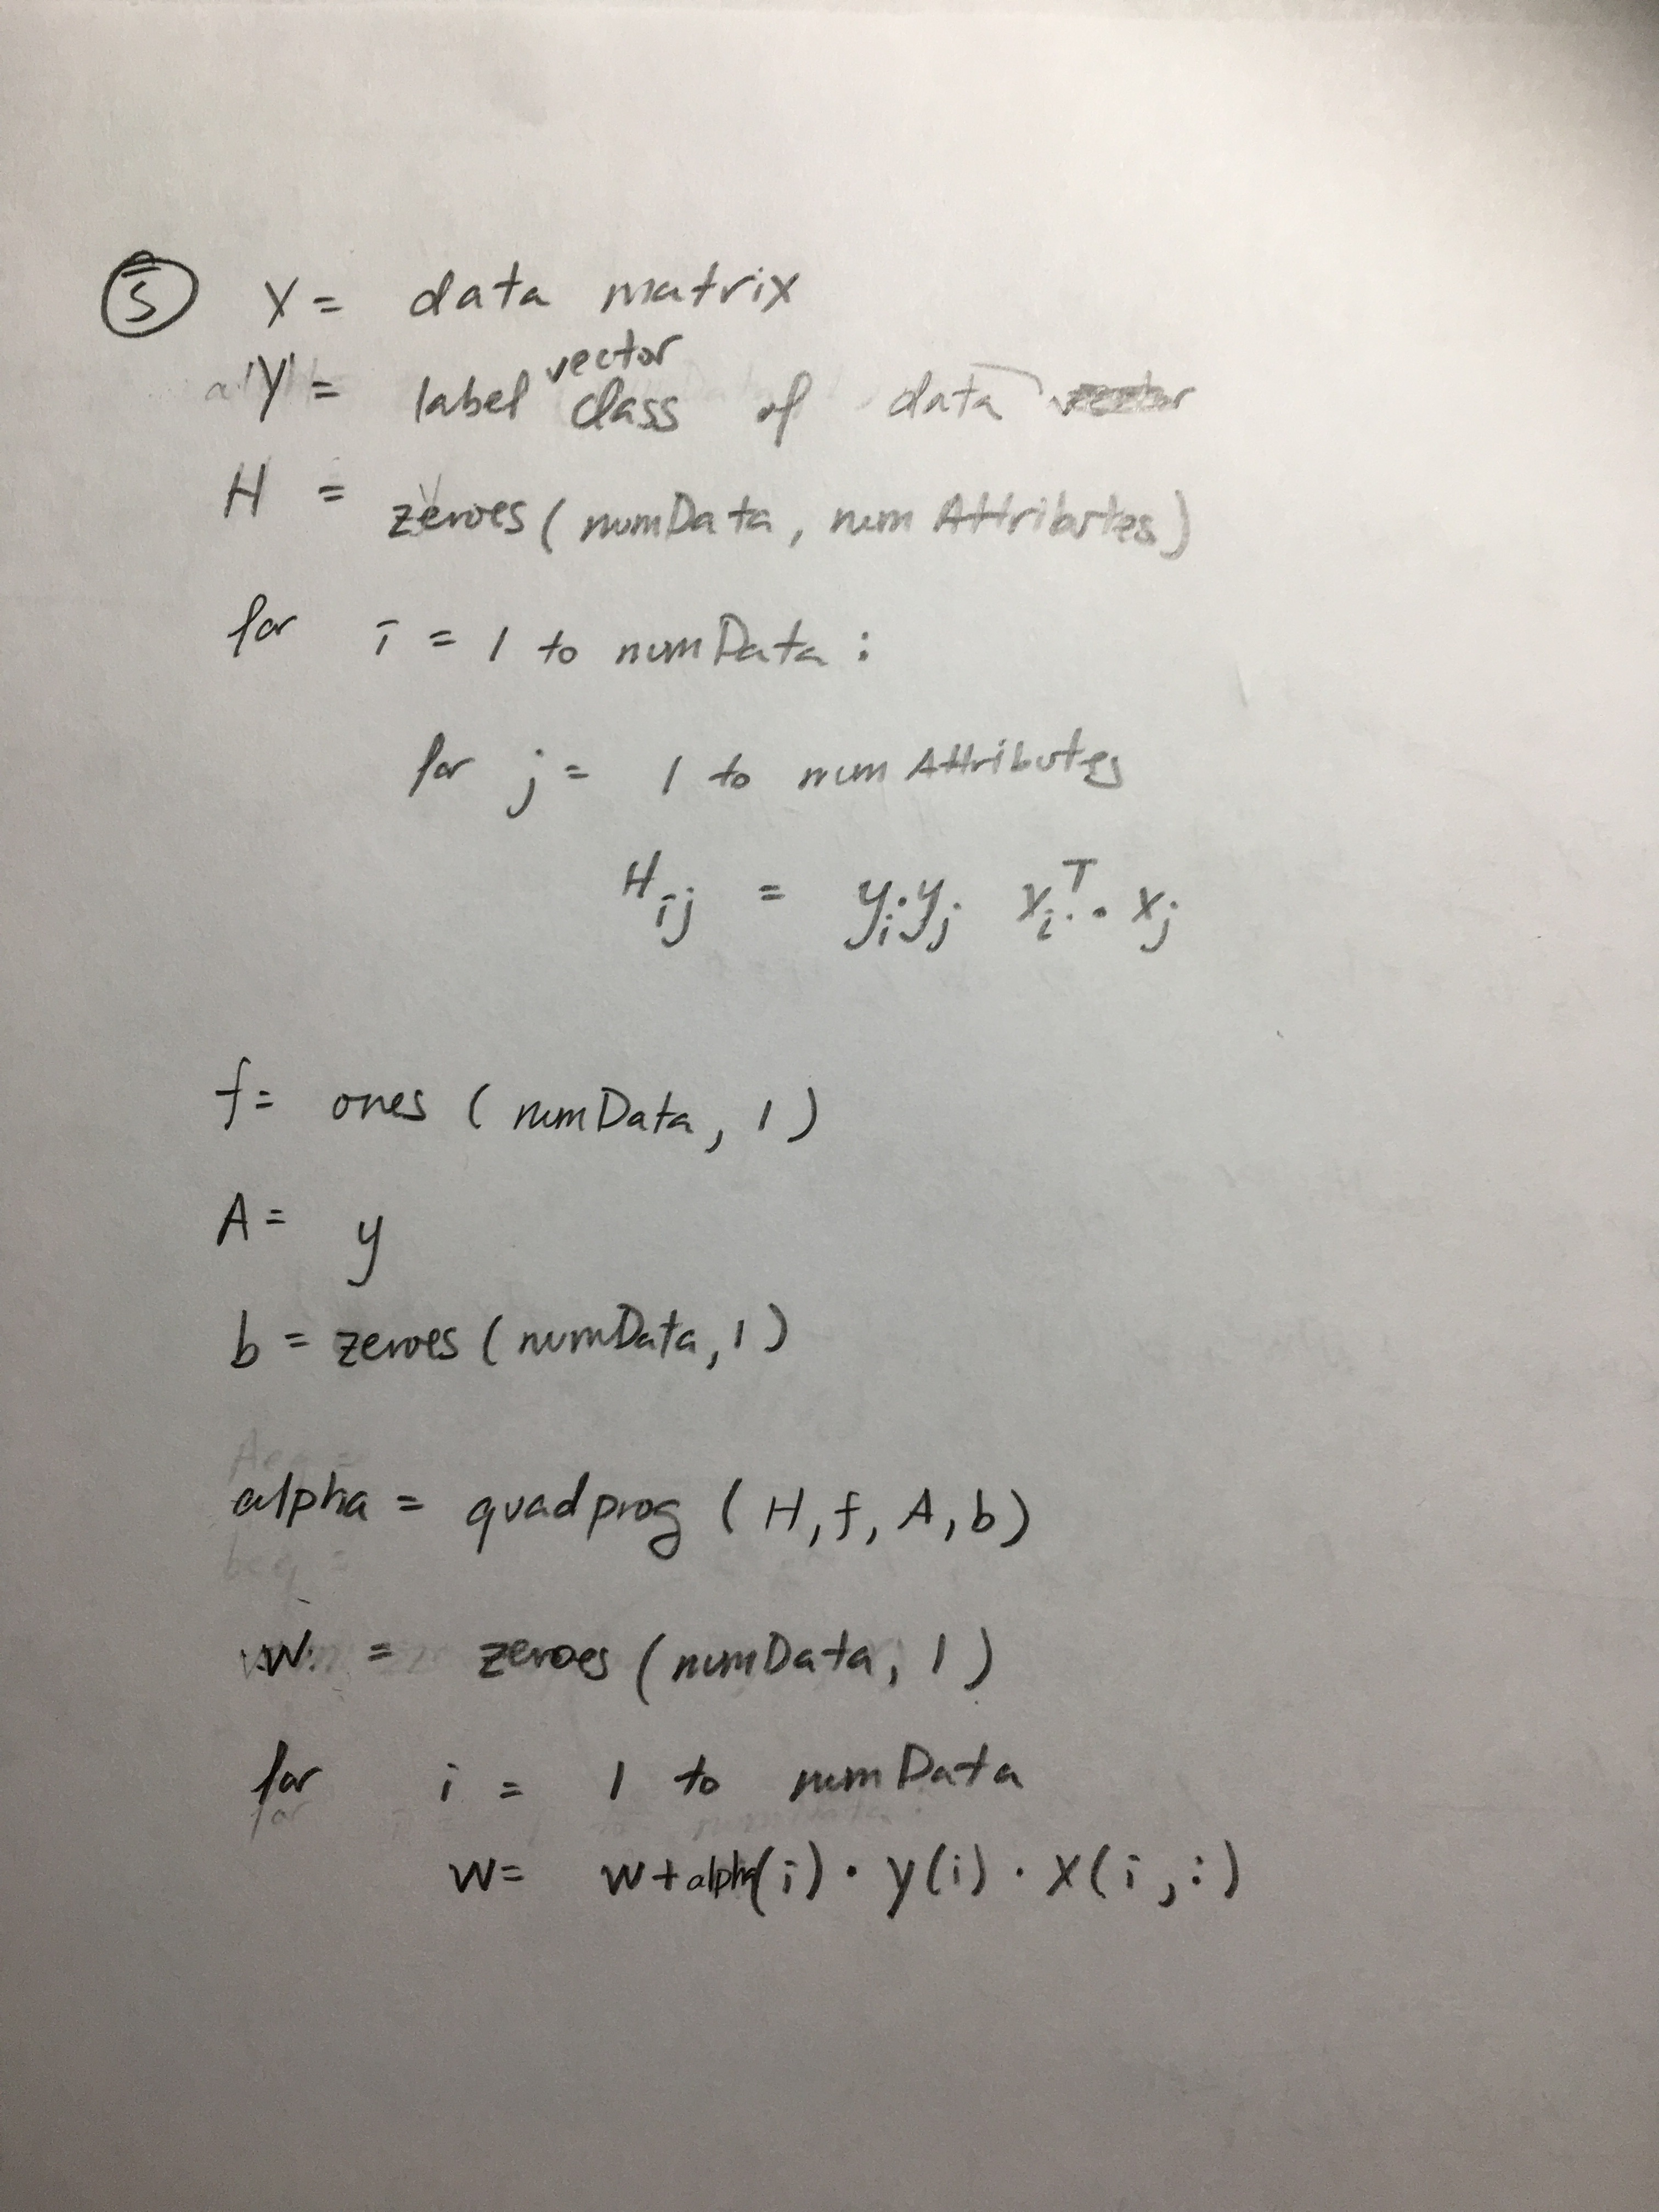 ⑤ X = data matrix
Y = label vector class of data
H = zeroes ( numData, numAttributes )
for i = 1 to numData :
for j = 1 to numAttributes
Hij = yi·yj xiT · xj
f = ones ( numData, 1 )
A = y
b = zeroes ( numData, 1 )
alpha = quadprog ( H, f, A, b )
w = zeroes ( numData, 1 )
for i = 1 to numData
w = w + alpha(i) · y(i) · X(i, :)